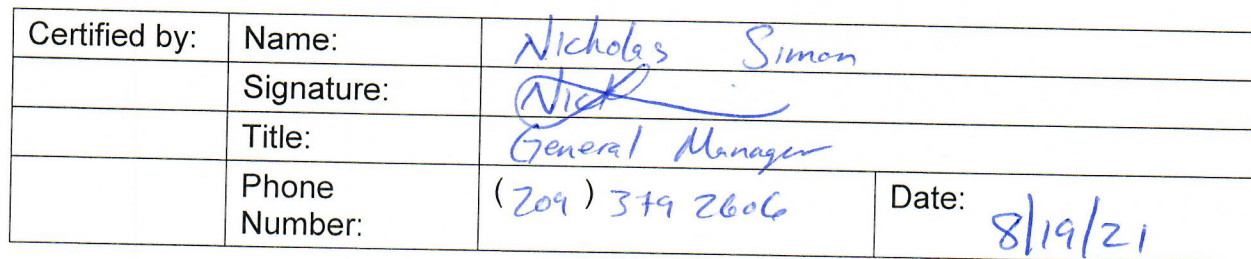 Certified by: Name: Nicholas Simon
Signature: Nick
Title: General Manager
Phone Number: (209) 379 2606 Date: 8/19/21